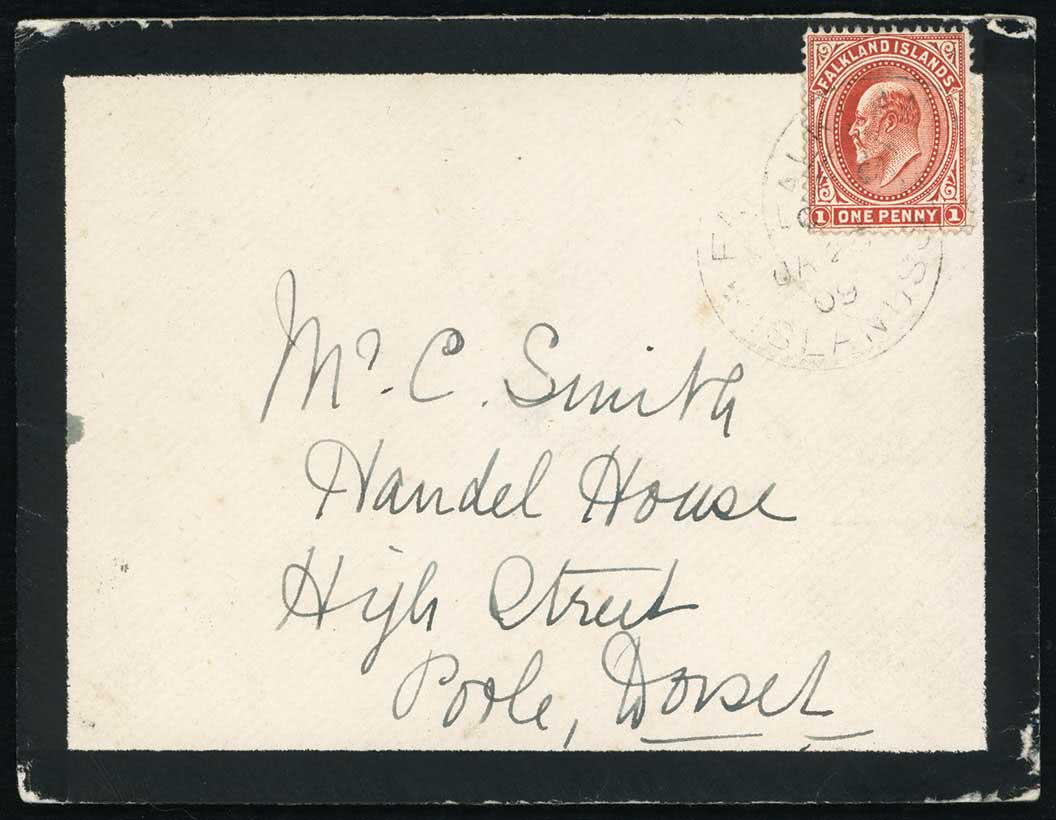 FALKLAND ISLANDS
1 ONE PENNY 1
FALKLAND
JA 2
09
ISLANDS
Mr. C. Smith
Handel House
High Street
Poole, Dorset